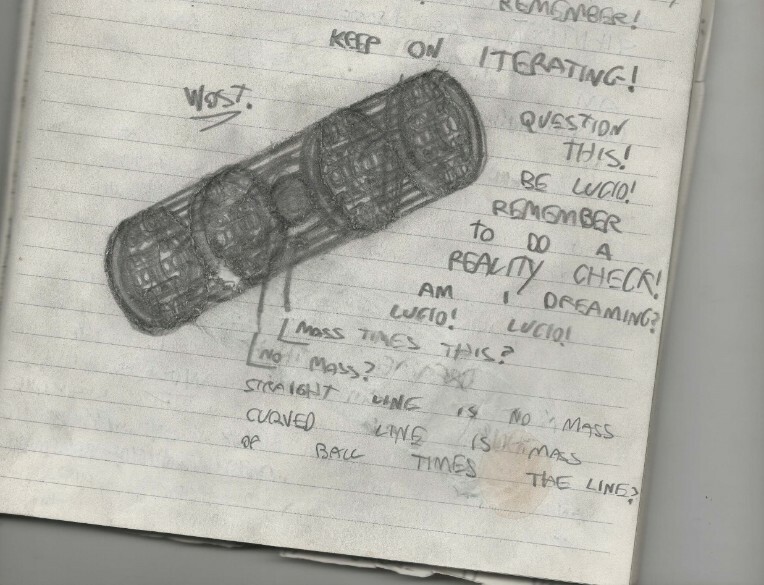 REMEMBER!
KEEP ON ITERATING!
WOST.
QUESTION
THIS!
BE LUCID!
REMEMBER
TO DO A
REALITY CHECK!
AM I DREAMING?
LUCID! LUCID!
MASS TIMES THIS?
NO MASS?
STRAIGHT LINE IS NO MASS
CURVED LINE IS MASS
OF BALL TIMES THE LINE?